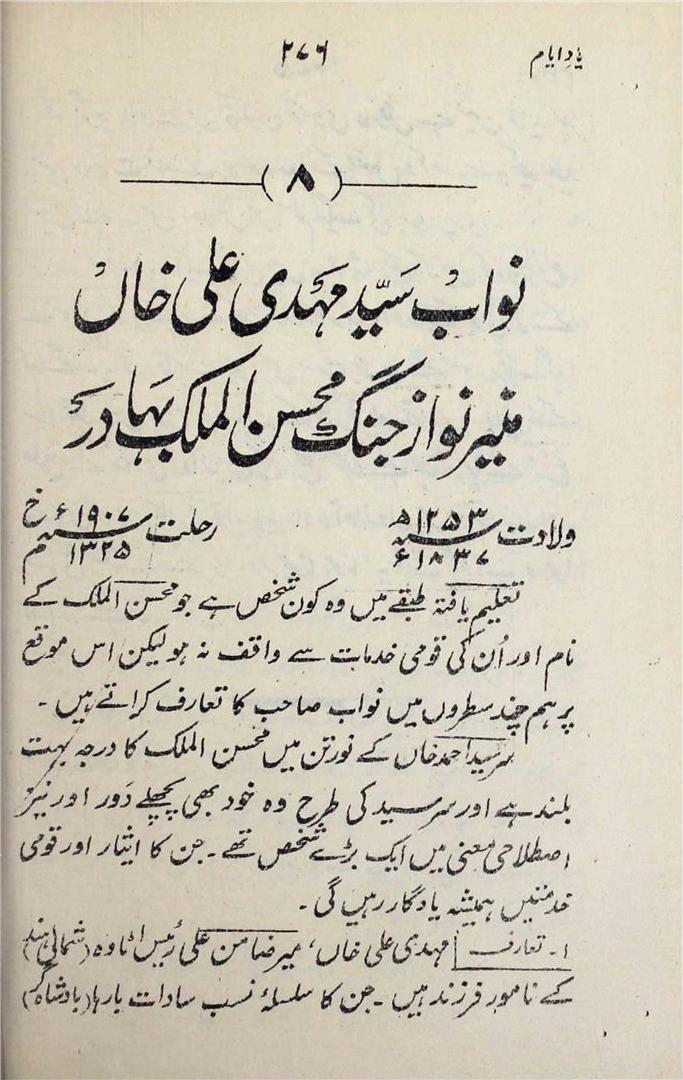 یادِ ایام
۲۷۶
(۸)
نواب سیّد مہدی علی خاں
منیر نواز جنگ محسن الملک بہادر
ولادت ۱۲۵۳ھ / ۱۸۳۷ء رحلت ۱۹۰۷ء / ۱۳۲۵
تعلیم یافتہ طبقے میں وہ کون شخص ہے جو محسن الملک کے
نام اور اُن کی قومی خدمات سے واقف نہ ہو لیکن اس موقع
پر ہم چند سطروں میں نواب صاحب کا تعارف کراتے ہیں ۔
سرسید احمد خاں کے نورتن میں محسن الملک کا درجہ بہت
بلند ہے اور سرسید کی طرح وہ خود بھی پچھلے دَور اور نیز
اصطلاحی معنی میں ایک بڑے شخص تھے ۔ جن کا ایثار اور قومی
خدمتیں ہمیشہ یادگار رہیں گی ۔
۱۔ تعارف مہدی علی خاں، میر ضامن علی رئیس اٹاوہ (شمالی ہند)
کے نامور فرزند ہیں ۔ جن کا سلسلۂ نسب سادات بارہا (بادشاہ گر)